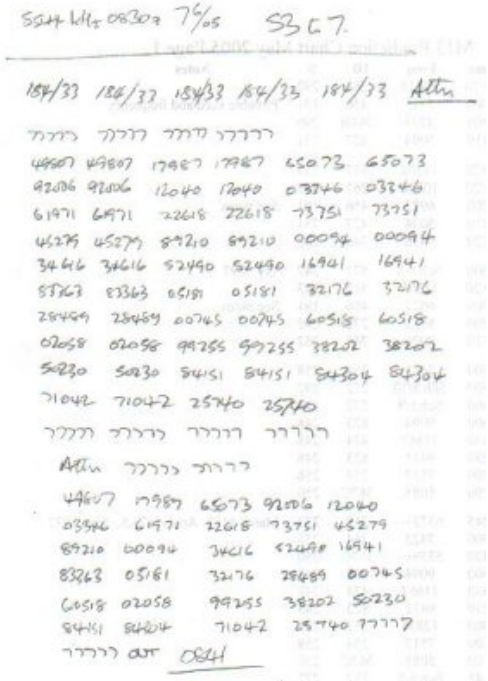 5544 kHz 0830z 7/6/05 S3 G7.
184/33 184/33 184/33 184/33 184/33 Attn
77777 77777 77777 77777
49807 49807 17987 17987 65073 65073
92006 92006 12040 12040 03346 03346
61971 61971 22618 22618 73751 73751
45279 45279 89210 89210 00094 00094
34616 34616 52490 52490 16941 16941
83363 83363 05181 05181 32176 32176
28489 28489 00745 00745 60518 60518
02058 02058 99255 99255 38202 38202
50230 50230 84151 84151 84304 84304
71042 71042 25740 25740
77777 77777 77777 77777
Attn 77777 77777
49807 17987 65073 92006 12040
03346 61971 22618 73751 45279
89210 00094 34616 52490 16941
83363 05181 32176 28489 00745
60518 02058 99255 38202 50230
84151 84304 71042 25740 77777
77777 out 0841